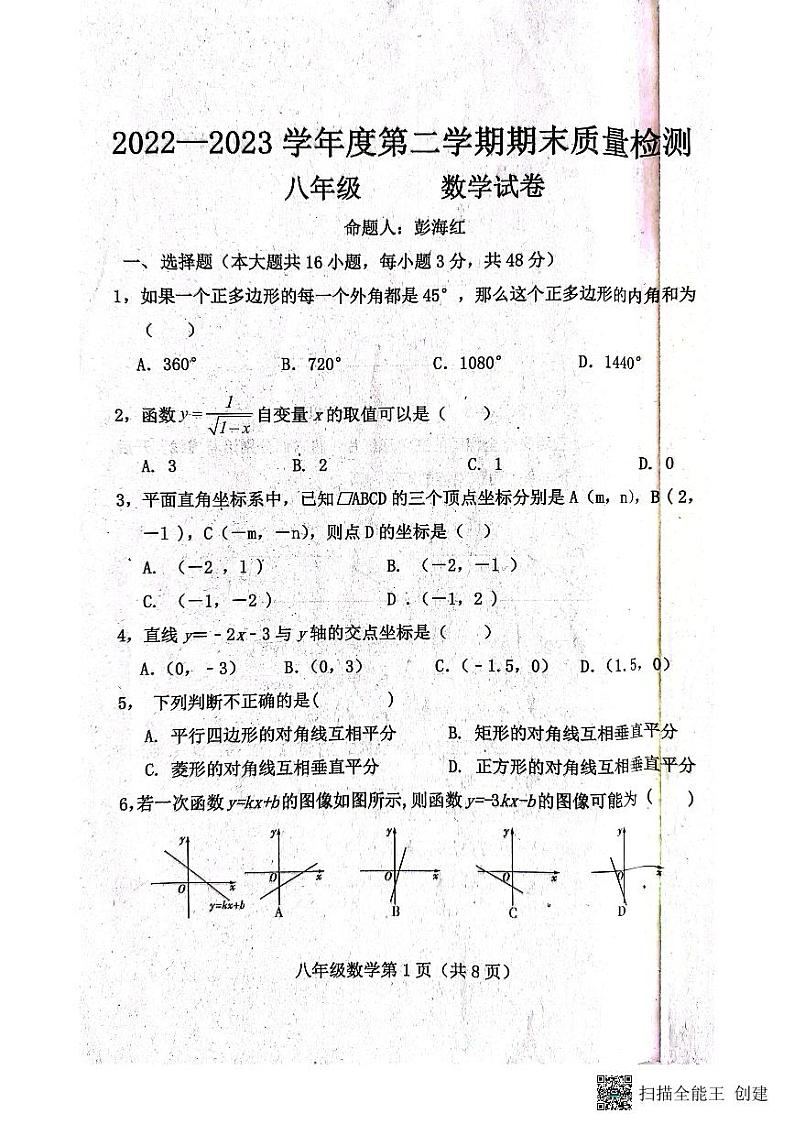 2022—2023 学年度第二学期期末质量检测
八年级 数学试卷
命题人：彭海红
一、选择题（本大题共 16 小题，每小题 3 分，共 48 分）
1，如果一个正多边形的每一个外角都是 45°，那么这个正多边形的内角和为
（ ）
A. 360° B. 720° C. 1080° D. 1440°
2，函数 y=1/√(1-x) 自变量 x 的取值可以是（ ）
A. 3 B. 2 C. 1 D. 0
3，平面直角坐标系中，已知□ABCD 的三个顶点坐标分别是 A（m，n），B（2，
－1），C（－m，－n），则点 D 的坐标是（ ）
A. （－2，1） B. （－2，－1）
C. （－1，－2） D .（－1，2）
4，直线 y=﹣2x﹣3 与 y 轴的交点坐标是（ ）
A.（0，﹣3） B.（0，3） C.（﹣1.5，0） D.（1.5，0）
5， 下列判断不正确的是( )
A. 平行四边形的对角线互相平分 B. 矩形的对角线互相垂直平分
C. 菱形的对角线互相垂直平分 D. 正方形的对角线互相垂直平分
6,若一次函数 y=kx+b 的图像如图所示,则函数 y=-3kx-b 的图像可能为（ ）
y O x y=kx+b
y O x A
y O x B
y O x C
y O x D
八年级数学第 1 页（共 8 页）
扫描全能王 创建